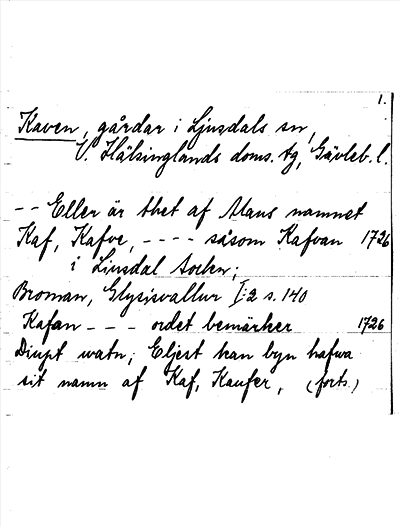 1.
Kaven, gårdar i Ljusdals sn,
V. Hälsinglands doms. tg, Gävleb. l.
-- Eller är thet af Mans namnet
Kaf, Kafve, ---- såsom Kafvan 1726
i Liusdal Sochn;
Broman, Glysisvallur I:2 s. 140
Kafan --- ordet bemärker 1726
Diupt watn; Eljest kan byn hafwa
sit namn af Kaf, Kaufer, (forts.)